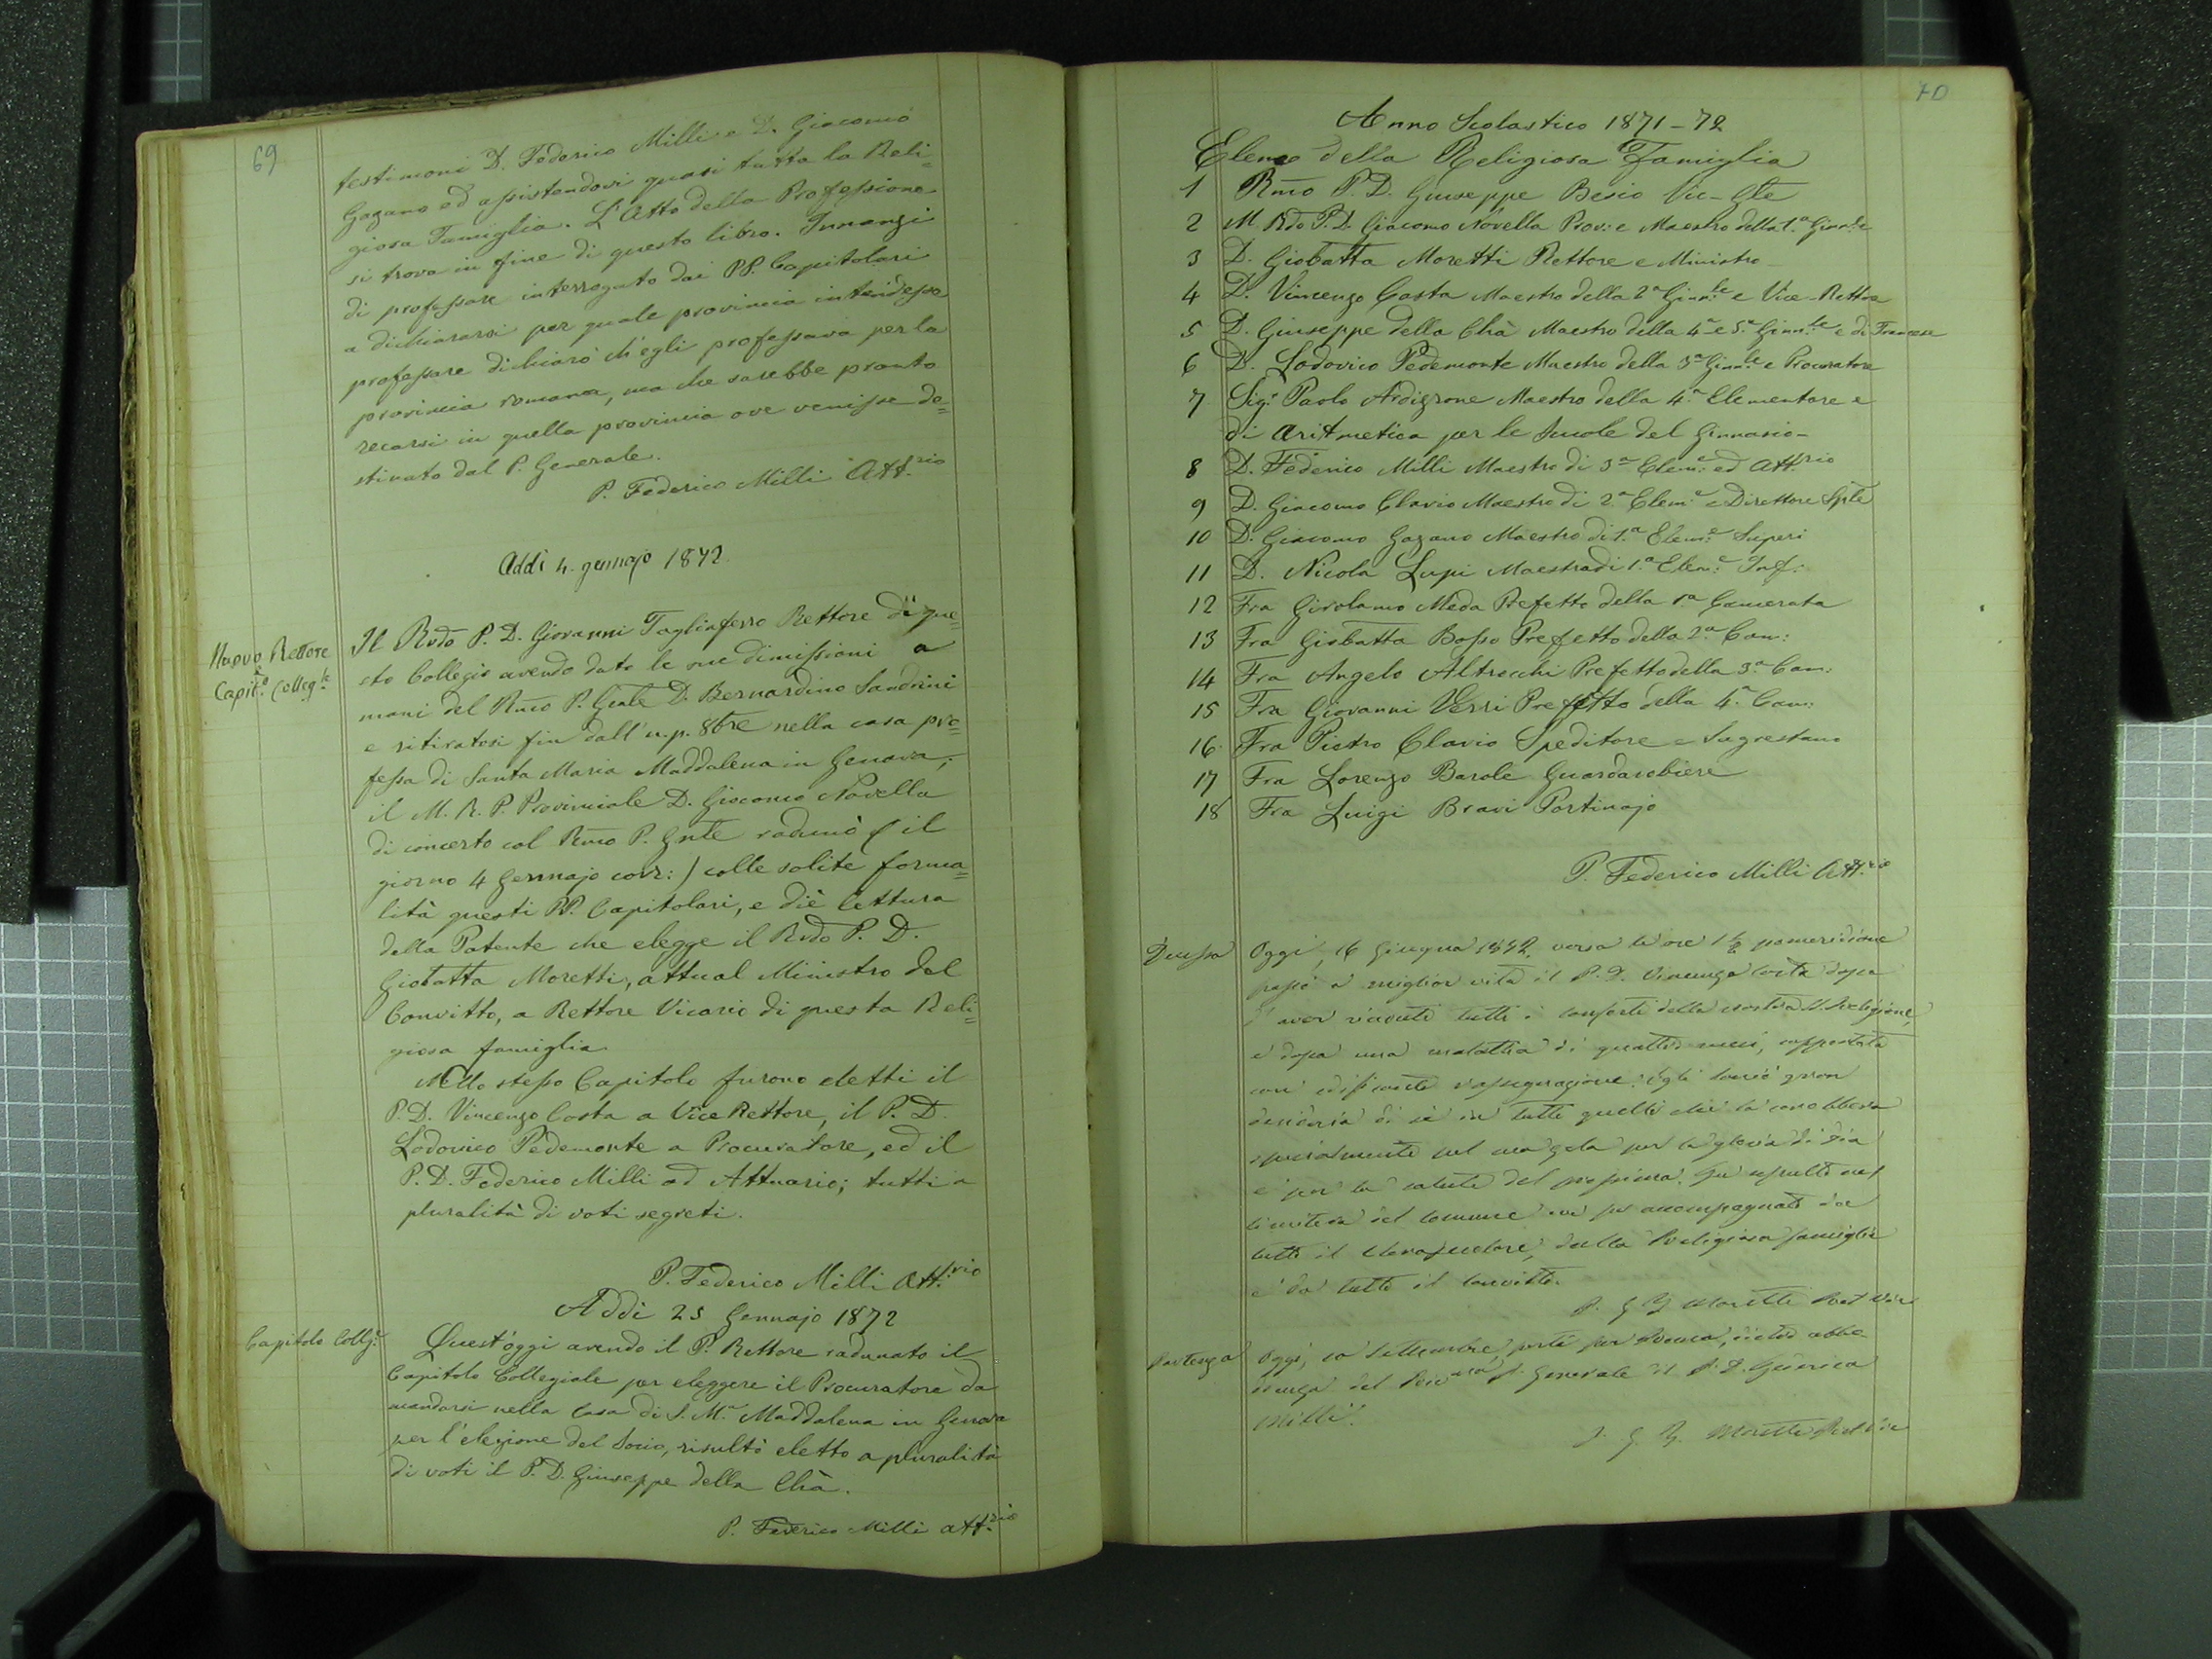 69
testimoni D. Federico Milli e D. Giacomo
Gazano ed assistendovi quasi tutta la Reli=
giosa Famiglia. L'Atto della Professione
si trova in fine di questo libro. Innanzi
di professare interrogato dai PP. Capitolari
a dichiararsi per quale provincia intendesse
professare dichiarò ch'egli professava per la
provincia romana, ma che sarebbe pronto
recarsi in quella provincia ove venisse de=
stinato dal P. Generale.
P. Federico Milli Att.rio
Addì 4. gennajo 1872.
Nuovo Rettore
e
Capit.o Colleg.le
Il Rvdo P. D. Giovanni Tagliaferro Rettore di que=
sto Collegio avendo dato le sue dimissioni a
mani del Rmo P. Gnle D. Bernardino Sandrini
e ritiratosi fin dall'u.p. 8bre nella casa pro=
fessa di Santa Maria Maddalena in Genova,
il M. R. P. Provinciale D. Giacomo Novella
di concerto col Rmo P. Gnle radunò (il
giorno 4 Gennajo corr:) colle solite forma=
lità questi PP. Capitolari, e diè lettura
della Patente che elegge il Rvdo P. D.
Giobatta Moretti, attual Ministro del
Convitto, a Rettore Vicario di questa Reli=
giosa famiglia
Nello stesso Capitolo furono eletti il
P. D. Vincenzo Costa a Vice Rettore, il P. D.
Lodovico Pedemonte a Procuratore, ed il
P. D. Federico Milli ad Attuario; tutti a
pluralità di voti segreti.
P. Federico Milli Att.rio
Addì 25 Gennajo 1872
Capitolo Coll.e
Quest'oggi avendo il P. Rettore radunato il
Capitolo Collegiale per eleggere il Procuratore da
mandarsi nella Casa di S. M.a Maddalena in Genova
per l'elezione del Socio, risultò eletto a pluralità
di voti il P. D. Giuseppe della Chà.
P. Federico Milli att.rio
70
Anno Scolastico 1871-72
Elenco della Religiosa Famiglia
1 Rmo P. D. Giuseppe Besio Vic-Gle
2 M. Rdo P. D. Giacomo Novella Prov: e Maestro della 1.a Ginn.le
3 D. Giobatta Moretti Rettore e Ministro
4 D. Vincenzo Costa Maestro della 2.a Ginn.le e Vice-Rettore
5 D. Giuseppe della Chà Maestro della 4.a e 5.a Ginn.le e di Francese
6 D. Lodovico Pedemonte Maestro della 3.a Ginn.le e Procuratore
7 Sig. Paolo Ardizzone Maestro della 4.a Elementare e
di Aritmetica per le Scuole del Ginnasio-
8 D. Federico Milli Maestro di 3.a Elem.e ed Att.rio
9 D. Giacomo Clavio Maestro di 2.a Elem.e e Direttore Sple
10 D. Giacomo Gazano Maestro di 1.a Elem.e Superi
11 D. Nicola Lupi Maestro di 1.a Elem.e Inf:
12 Fra Girolamo Meda Prefetto della 1.a Camerata
13 Fra Giobatta Bosso Prefetto della 2.a Cam:
14 Fra Angelo Altrocchi Prefetto della 3.a Cam:
15 Fra Giovanni Verri Prefetto della 4.a Cam:
16. Fra Pietro Clavio Speditore e Sagrestano
17 Fra Lorenzo Barole Guardarobiere
18 Fra Luigi Bravi Portinajo
P. Federico Milli Att.rio
Oggi, 16 Giugno 1872. verso le ore 1 1/2 pomeridiane
passò a miglior vita il P. D. Vincenzo Costa dopo
d'aver ricevuti tutti i conforti della nostra S. Religione,
e dopo una malattia di quattro mesi, sopportata
con edificante rassegnazione. Egli lasciò gran
desiderio di sè in tutti quelli che lo conobbero
specialmente pel suo zelo per la gloria di Dio
e per la salute del prossimo. Fu sepolto nel
cimitero del comune ove fu accompagnato da
tutto il Clero secolare, dalla Religiosa famiglia
e da tutto il convitto.
P. G. B. Moretti Ret Vic
Partenza
Oggi, 10 Settembre, partì per dietro obbe-
dienza del P. Generale il P. D. Federico
Milli.
P. G. B. Moretti Ret Vic